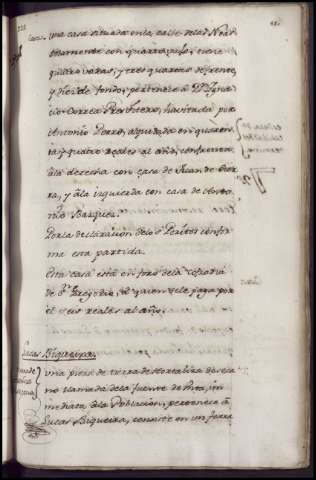 Casas
una casa situada en la calle de la
altamente con quarto vajo, tiene
quatro varas, y tres quartas de frente,
y diez de fondo, pertenece a Dn Igna-
cio Correa Presvitero, havitada por
Antonio Porro, alquilada en quaren-
ta y quatro reales al año, confronta
a la derecha con casa de Juan de
y a la izquierda con casa de Anto-
nio Bazquez.
Por la declaracion de los Peritos confor-
ma esta partida.
Esta casa está en foro de la Cofradia
de Sn Gregorio, a quien se le paga por
el seis reales al año.
Lucas Biqueira.
una pieza de tierra de Hortaliza de seca-
no llamada de la fuente de in-
mediata a la Poblacion, pertenece a
Lucas Biqueira, consiste en un ferra